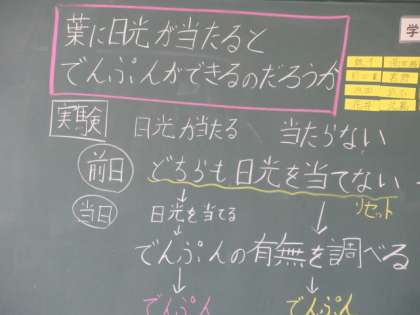 葉に日光が当たると
でんぷんができるのだろうか
実験 日光が当たる 当たらない
前日 どちらも日光を当てない
リセット
当日 日光を当てる
でんぷんの有無を調べる
でんぷん でんぷん
学